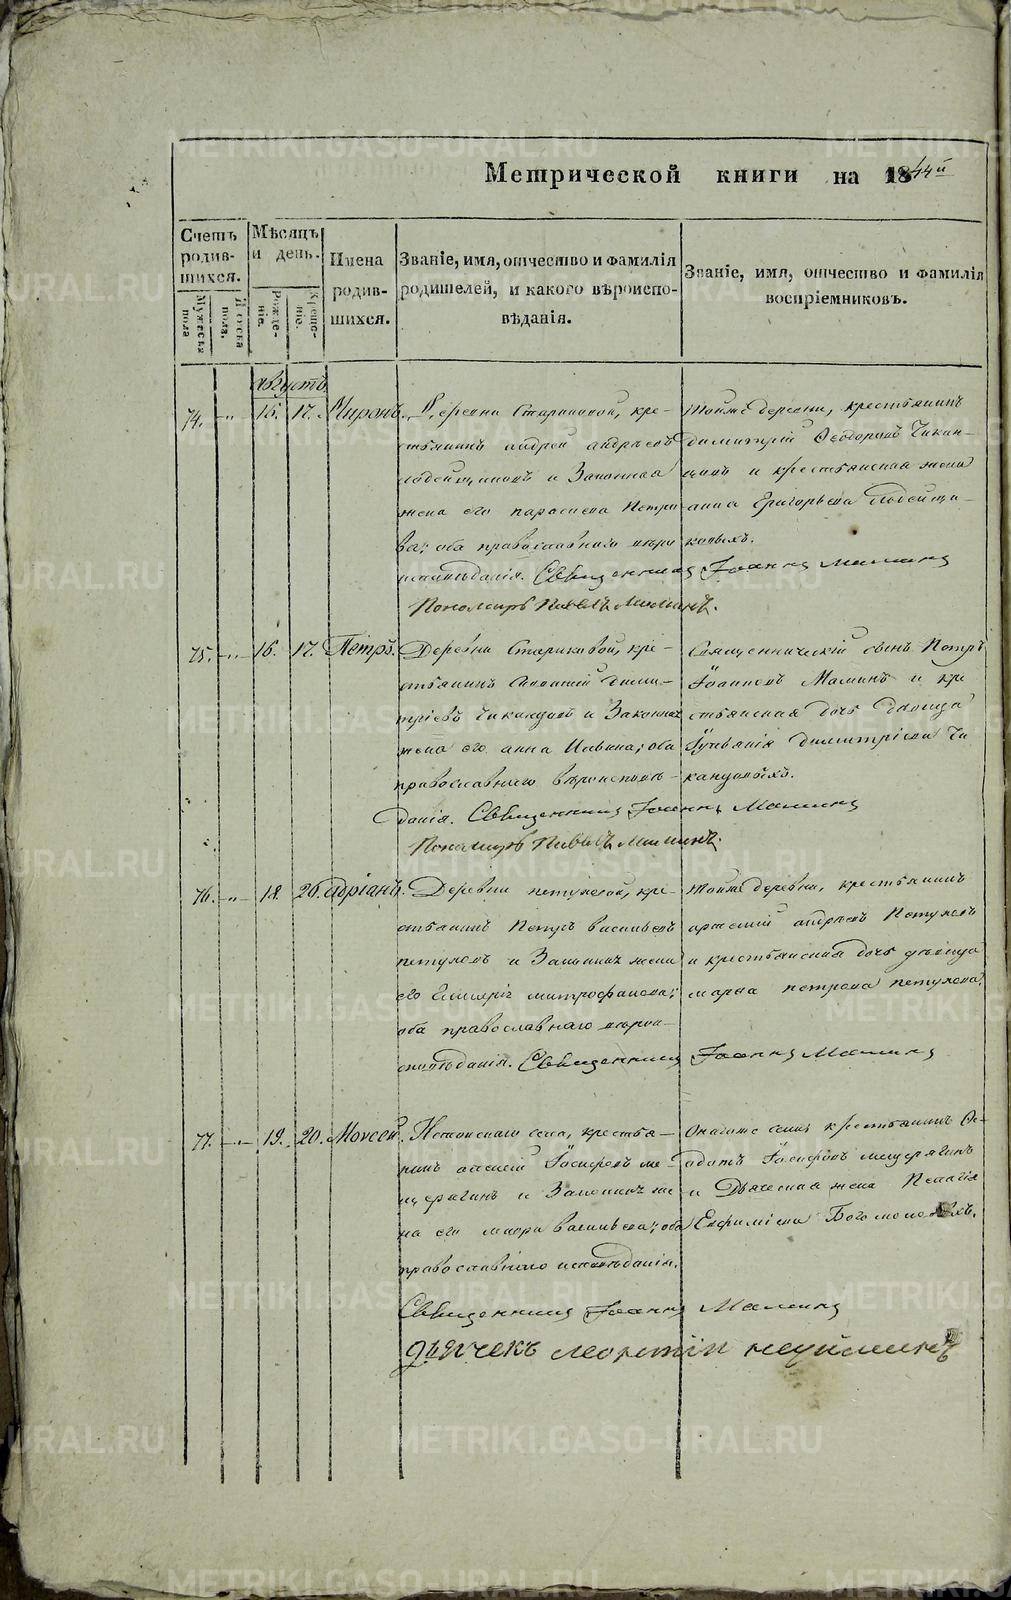 Метрической книги на 1844й
Счетъ родив-шихся.
Мужеска пола
Женска пола.
Мѣсяцъ и день.
Рожде-нія.
Креще-нія.
Имена родив-шихся.
Званіе, имя, отчество и фамилія родителей, и какого вѣроиспо-вѣданія.
Званіе, имя, отчество и фамилія воспріемниковъ.
Августъ
74. -"- 15. 17. Миронъ.
Деревни Стариковой, кре-
стьянинъ Андрей Андрѣевъ
и Законная
жена его Параскева Петро
ва; оба православнаго вѣро
исповѣданія. Священникъ Іоаннъ Маминъ
Пономарь Павелъ Маминъ.
Тойже деревни, крестьянинъ
Димитрій Ѳеодоровъ Чикан-
цовъ и крестьянская жена
Анна Григорьева
ковыхъ.
75. -"- 16. 17. Петръ.
Деревни Стариковой, кре-
стьянинъ Дими-
тріевъ и Законная
жена его Анна Ильина; оба
православнаго вѣроисповѣ-
данія. Священникъ Іоаннъ Маминъ
Пономарь Павелъ Маминъ.
Священническій сынъ Петръ
Іоанновъ Маминъ и кре
стьянская дочь Дѣвица
Іуліанія Димитріева Чи
канцовыхъ.
76. -"- 18. 26. Адріанъ.
Деревни Петуховой, кре-
стьянинъ Петръ Васильевъ
Петуховъ и Законная жена
его Гликерія Митрофанова;
оба православнаго вѣрои-
сповѣданія. Священникъ Іоаннъ Маминъ
Тойже деревни, крестьянинъ
Артемій Андрѣевъ Петуховъ
и крестьянская дочь дѣвица
Марѳа Петрова Петухова.
77. -"- 19. 20. Моисей.
села, крестья-
нинъ Алексій Іосифовъ Ме-
щерягинъ и Законная же
на его Марія Васильева; оба
православнаго исповѣданія.
Онагоже села крестьянинъ
Іосифовъ Мещерягинъ
и Дьяческая жена Пелагія
Евфиміева Богомоловыхъ.
Священникъ Іоаннъ Маминъ
Дьячекъ Леонтій